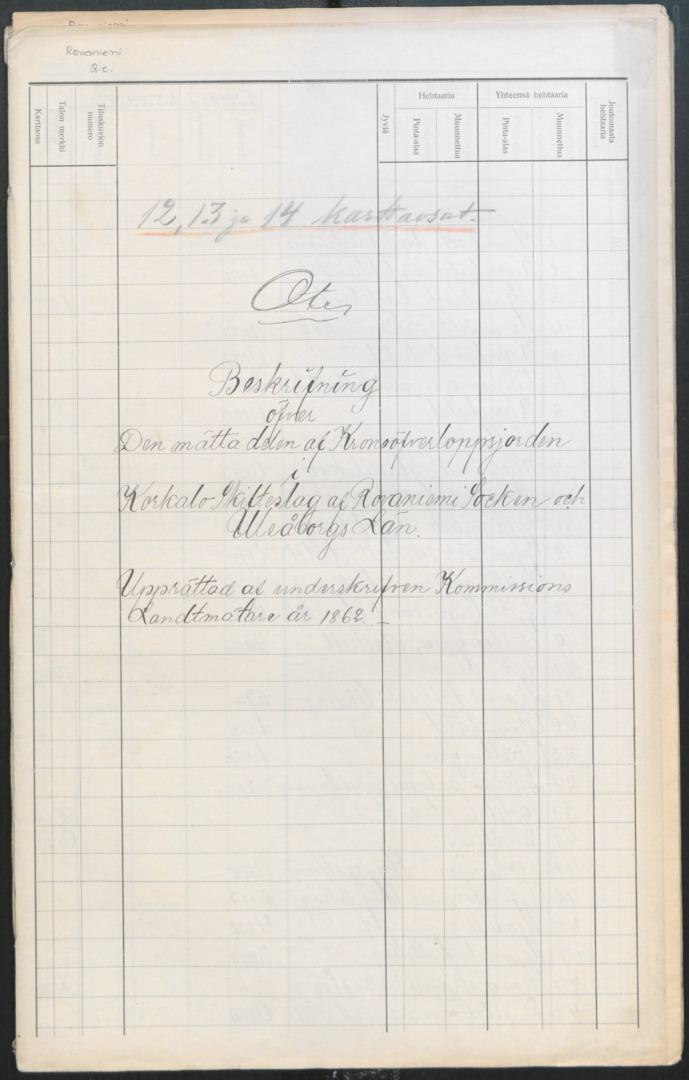 Rovaniemi
2.c.
Karttaosa
Talon merkki
Tiluskuvion numero
Jyviä
Hehtaaria
Pinta-alaa
Muunnettua
Yhteensä hehtaaria
Pinta-alaa
Muunnettua
Joutomaata hehtaaria
12, 13 ja 14 karttaosat.
Ote
Beskrifning
öfver
Den mätta delen af Kronoöfverloppsjorden
i
Korkalo Skifteslag af Rovaniemi Socken och
Uleåborgs Län.
Upprättad af underskrifven Kommissions
Landtmätare år 1862.